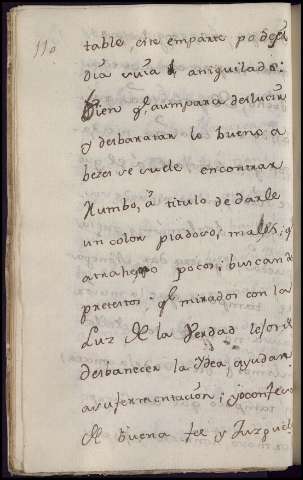 110
table este emparte po
dia vuia aniquilado:
Bien qe, aumpara deslucir
y desbaratar lo bueno a
bezes se suele encontrar
Rumbo, á titulo de darle
un color piadoso; males, q
atrahen pocos; buscando
pretextos; qe mirados con la
Luz de la Verdad
desbanecer la Ydea, ayudar
a su fermentacion; y
de buena fee y